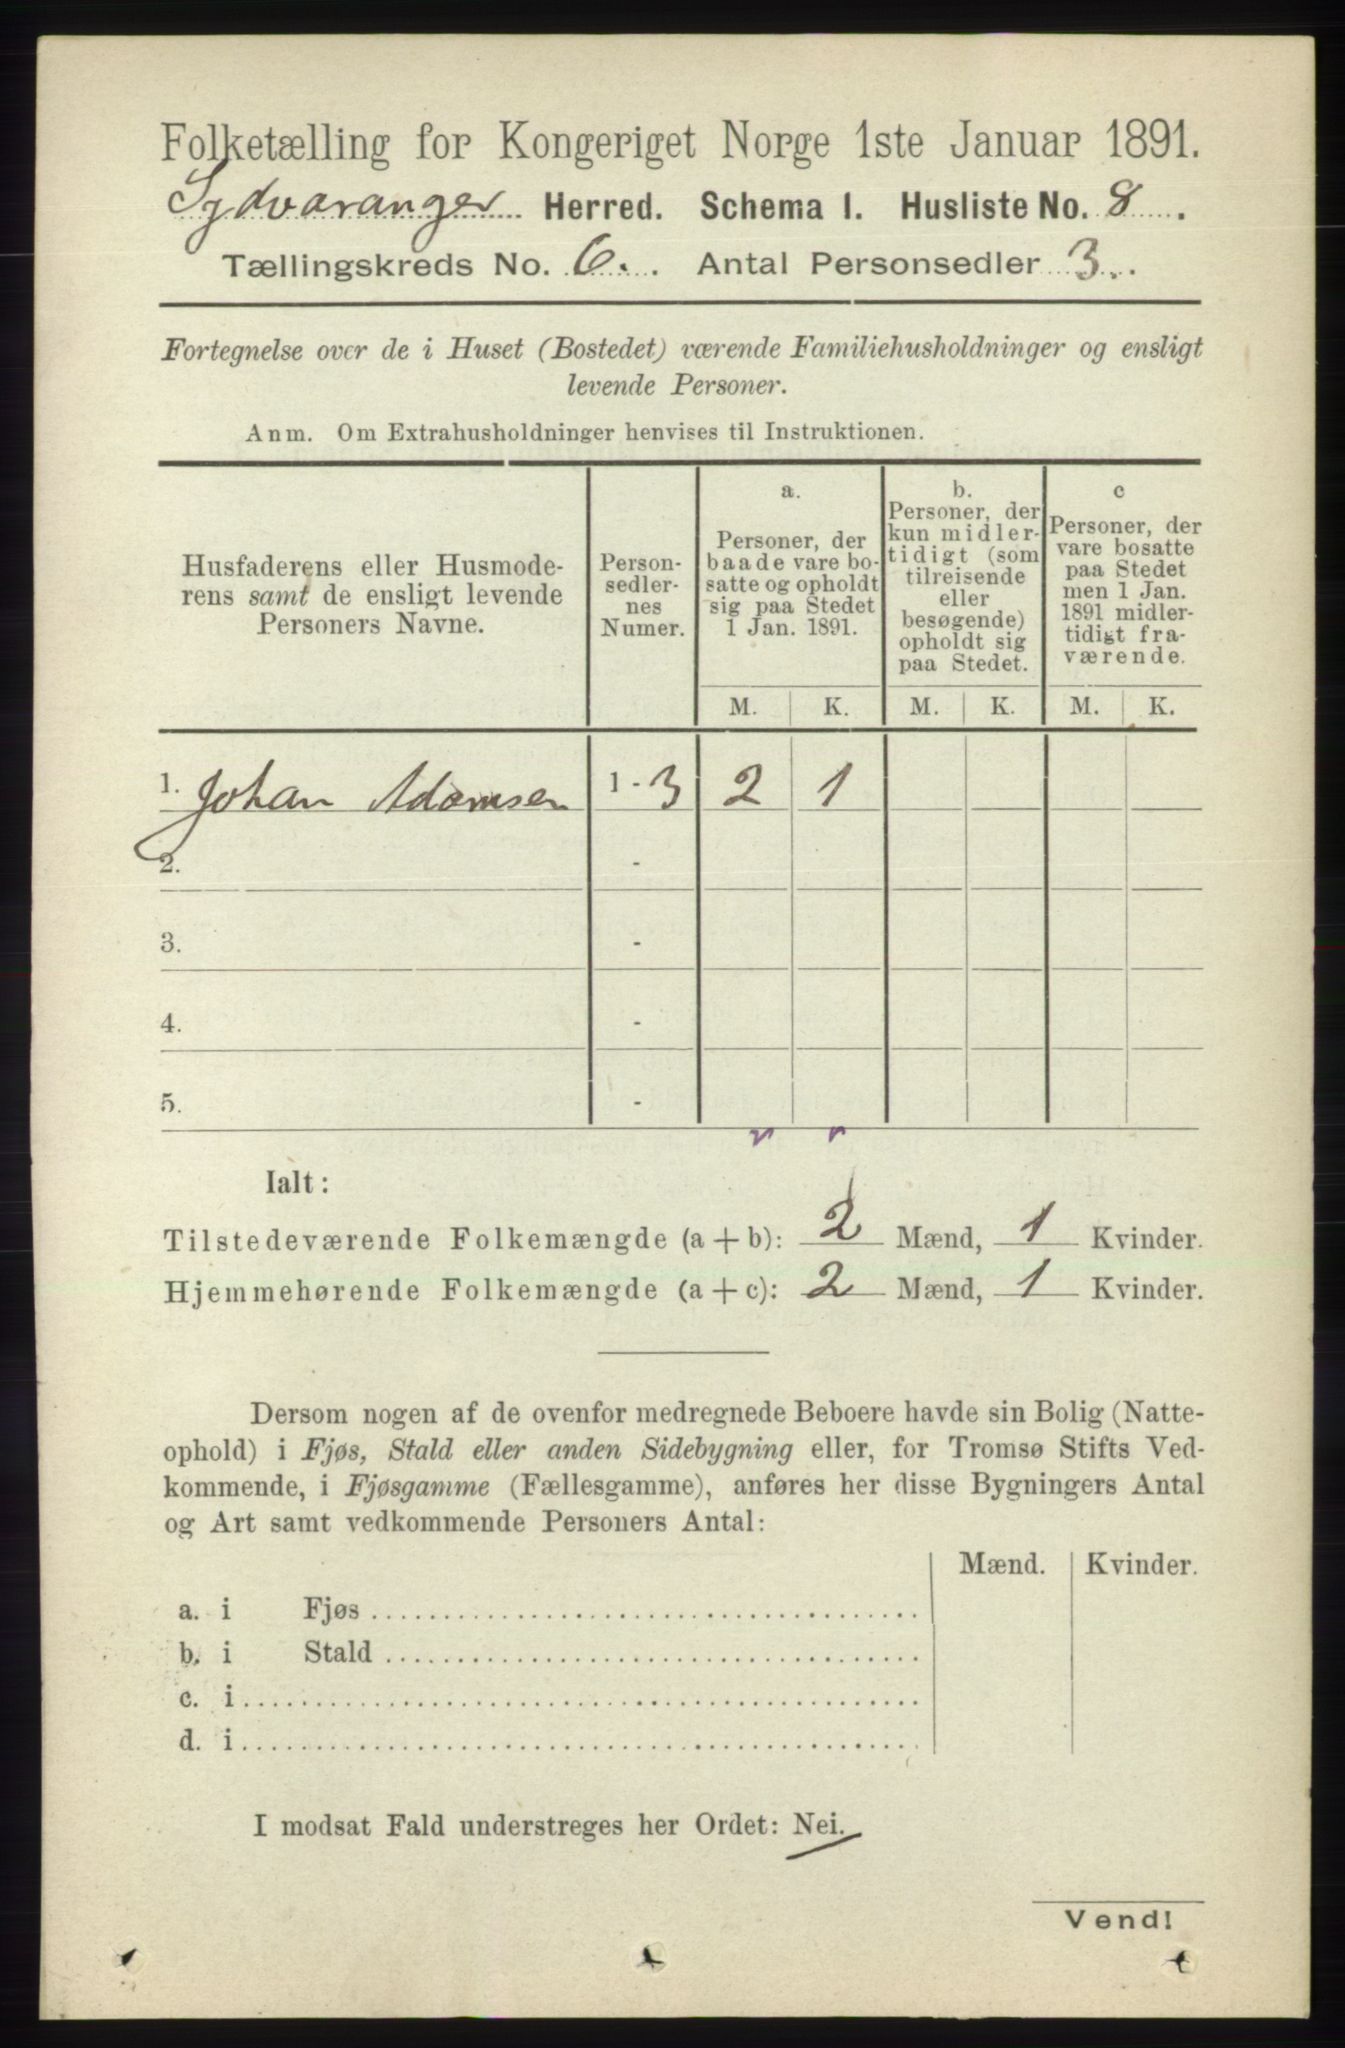 Folketælling for Kongeriget Norge 1ste Januar 1891.
Sydvaranger Herred. Schema 1. Husliste No. 8.
Tællingskreds No. 6. Antal Personsedler 3.
Fortegnelse over de i Huset (Bostedet) værende Familiehusholdninger og ensligt
levende Personer.
Anm. Om Extrahusholdninger henvises til Instruktionen.
Husfaderens eller Husmode-
rens samt de ensligt levende
Personers Navne.
Person-
sedler-
nes
Numer.
a.
Personer, der
baade vare bo-
satte og opholdt
sig paa Stedet
1 Jan. 1891.
M. K.
b.
Personer, der
kun midler-
tidigt (som
tilreisende
eller
besøgende)
opholdt sig
paa Stedet.
M. K.
c
Personer, der
vare bosatte
paa Stedet
men 1 Jan.
1891 midler-
tidigt fra-
værende.
M. K.
1. Johan Adamsen 1 - 3 2 1
2. -
3. -
4. -
5. -
Ialt:
Tilstedeværende Folkemængde (a + b): 2 Mænd, 1 Kvinder.
Hjemmehørende Folkemængde (a + c): 2 Mænd, 1 Kvinder.
Dersom nogen af de ovenfor medregnede Beboere havde sin Bolig (Natte-
ophold) i Fjøs, Stald eller anden Sidebygning eller, for Tromsø Stifts Ved-
kommende, i Fjøsgamme (Fællesgamme), anføres her disse Bygningers Antal
og Art samt vedkommende Personers Antal:
Mænd. Kvinder.
a. i Fjøs
b. i Stald
c. i
d. i
I modsat Fald understreges her Ordet: Nei.
Vend!